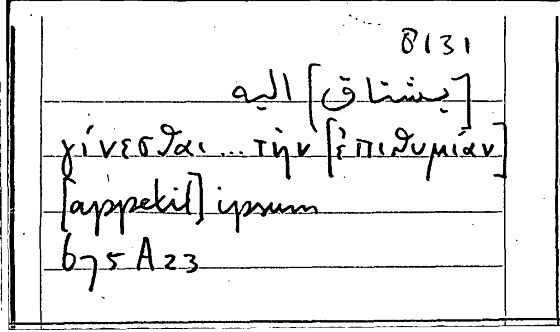 8131
[يشتاق] اليه
γίνεσθαι... τὴν [ἐπιθυμίαν]
[appetit] ipsum
675 A 23